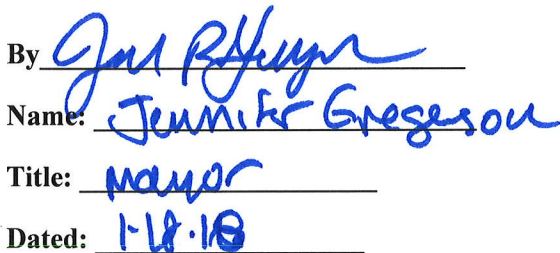 By
Name: Jennifer Gregerson
Title: Mayor
Dated: 1-18-18